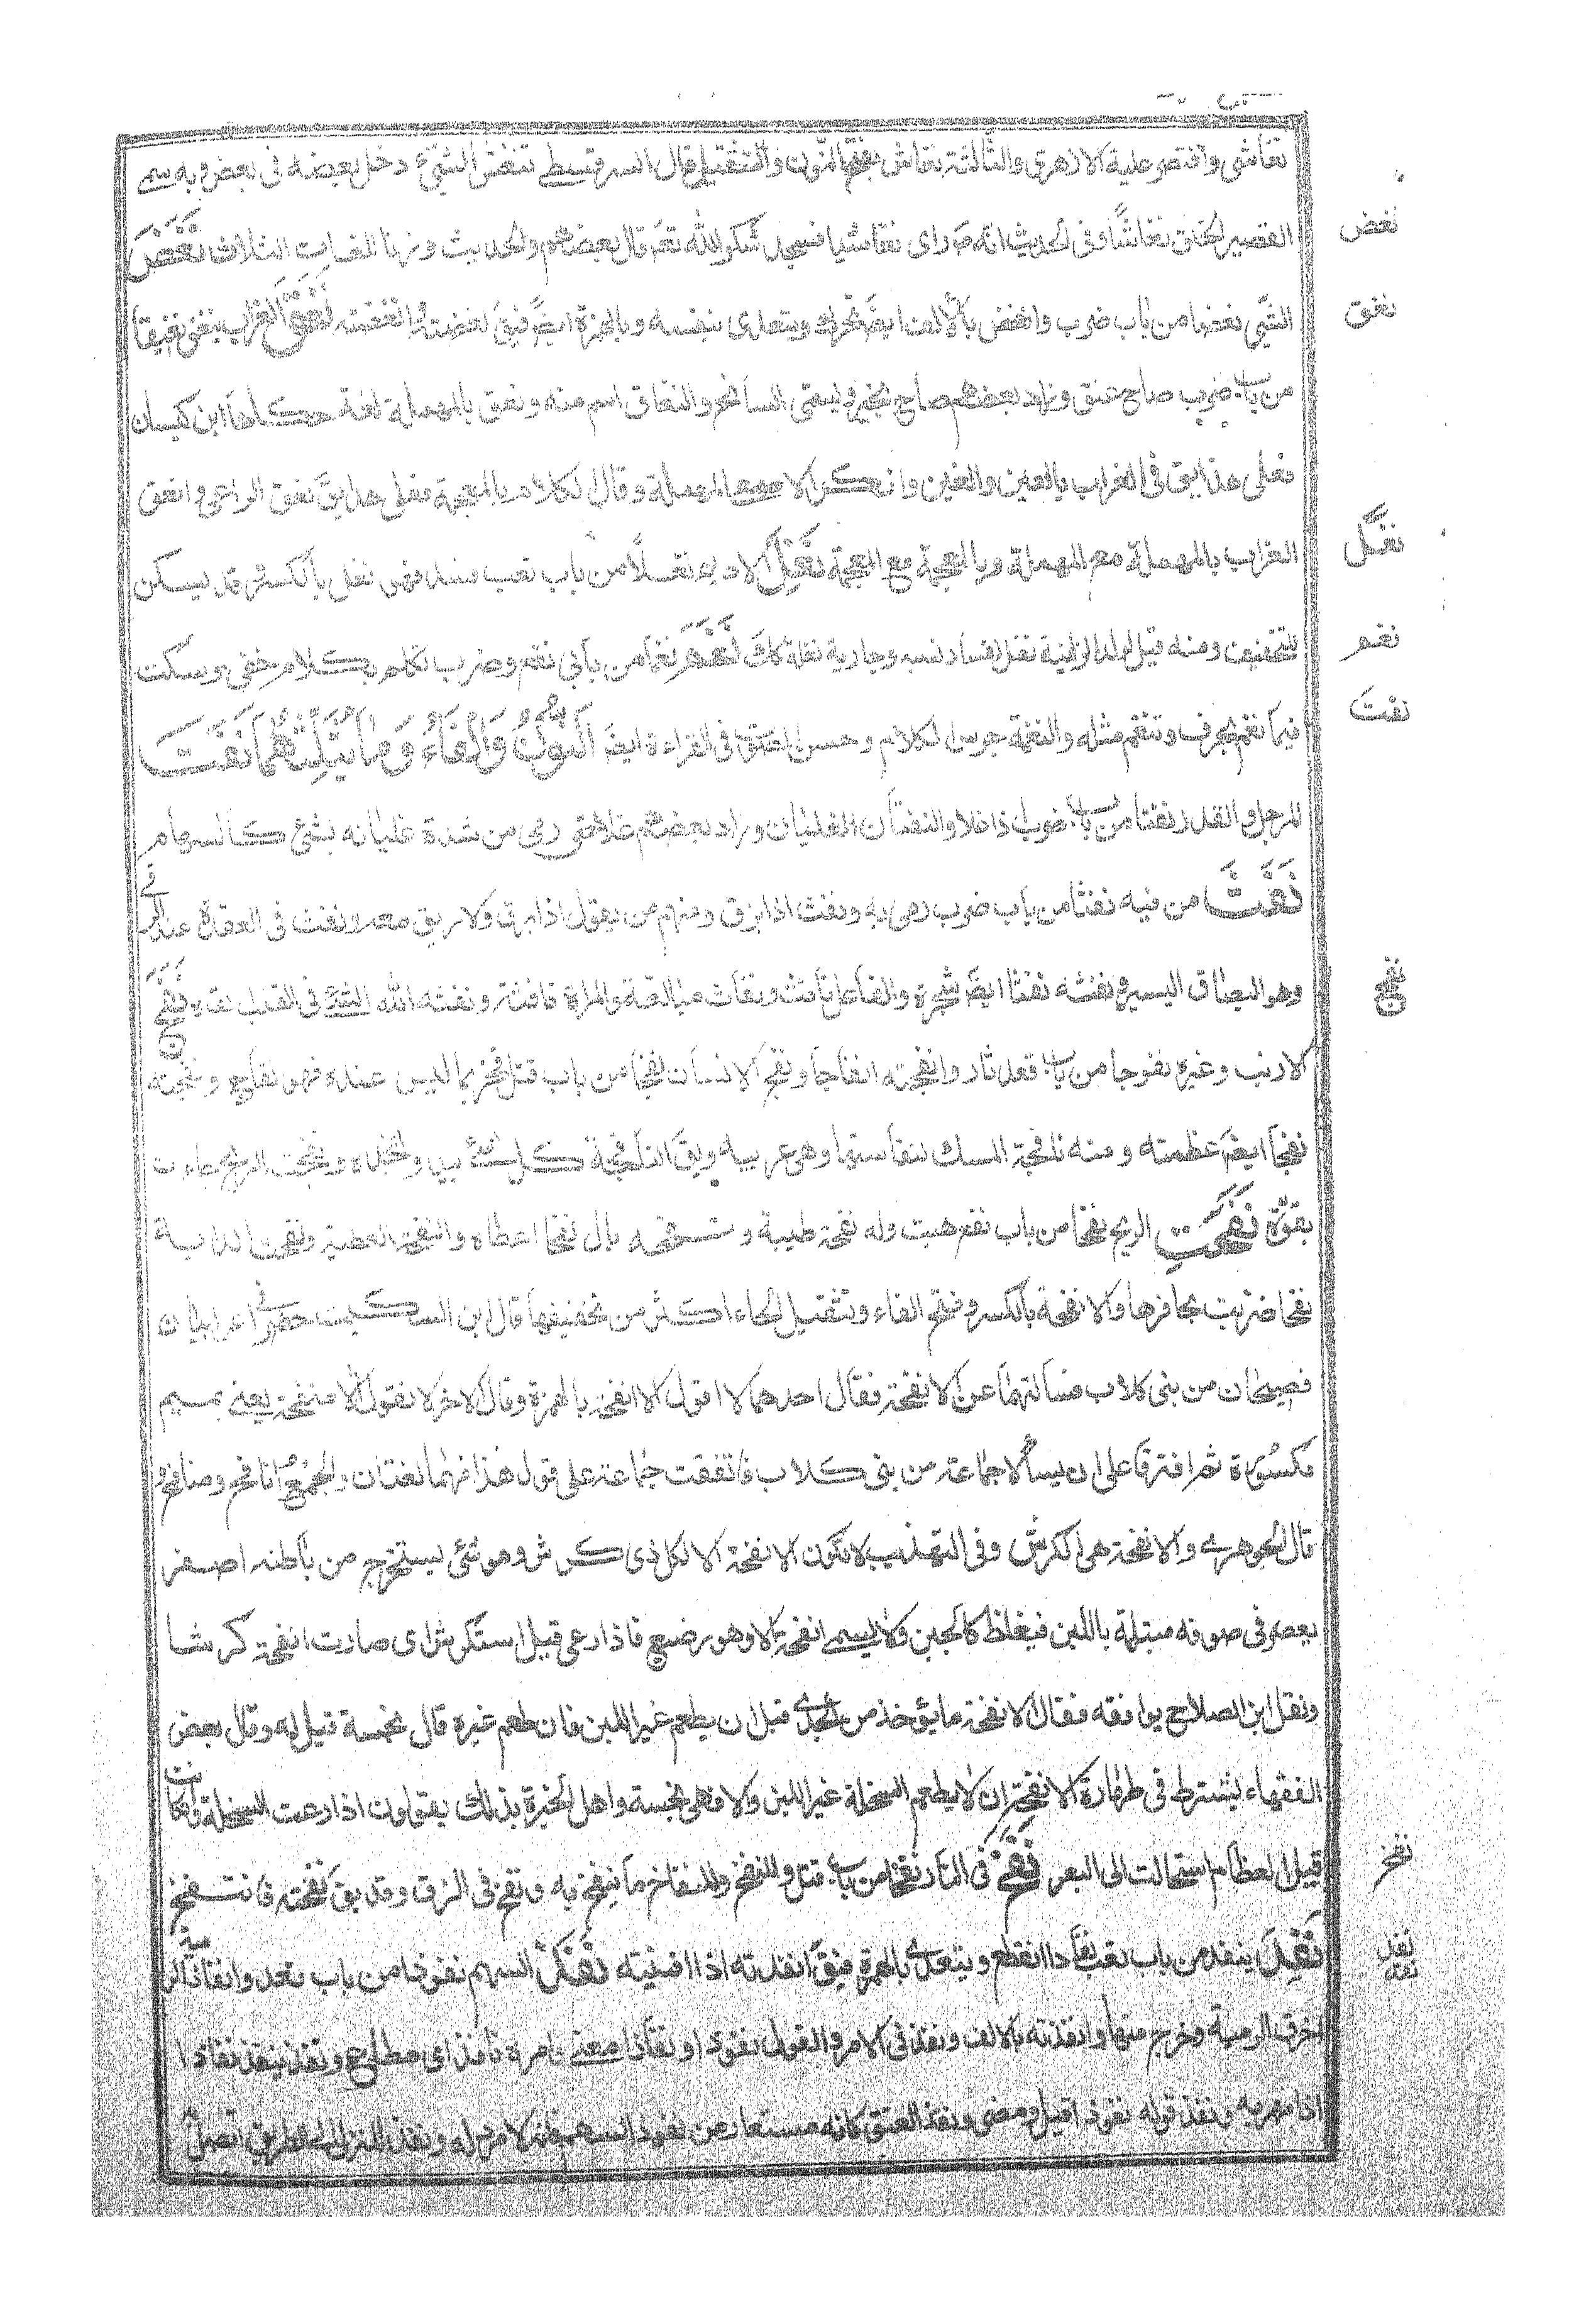 نغاشي واقتصر عليه الازهري والثالثة نغاش بفتح النون والتثقيل قال السرقسطي تنغش الشئ دخل بعضه في بعض وبه سمي
القصير الخلق نغاشا وفي الحديث انه صَ راى نغاشيا فسجد شكرا لله تعَ قال بعضهم والحديث ورد باللغات الثلاث نَغَضَ
الشئ نغضا من باب ضرب وانغض بالالف ايضَ تحرك ويتعدى بنفسه وبالهمزة ايضَ فيقَ نغضته وانغضته نَغَقَ الغراب ينغق نغيقا
من باب ضرب صاح غيق وزاد بعضهم صاح بخير ويسمى السانح والنغاق اسم منه ونعق بالمهملة لغة حكاها ابن كيسان
فعلى هذا يقَ في الغراب بالعين والغين وانكر الاصمعي المهملة وقال الكلام بالمعجمة فعلى هذا يقَ نعق الراعي ونغق
الغراب بالمهملة مع المهملة وبالمعجمة مع المعجمة نَغِلَ الاديم نغلا من باب تعب فسد فهو نغل بالكسر وقد يسكن
للتخفيف ومنه قيل لولد الزنية نغل لفساد نسبه وجارية نغلة كذلك نَغَمَ نغما من بابي نفع وضرب تكلم بكلام خفي وسكت
فما نغم بحرف وتنغم مثله والنغمة جرس الكلام وحسن الصوت في القراءة ايضَ النُّونُ وَالْفَاءُ وَمَا يَثْلِثُهُمَا نَفَتَ
المرجل والقدر نفتا من باب ضرب اذا غلا والنفتان الغليان وزاد بعضهم غلا حتى رمى من شدة غليانه بشئ كالسهام
نَفَثَ من فيه نفثا من باب ضرب رمى به ونفث اذا بزق ومنهم من يقول اذا بزق ولا ريق معه ونفث في العقدة عند الرقى
وهو البصاق اليسير ونفثه نفثا ايضَ سحره والفاعل نافث ونفاث مبالغة والمراة نافثة ونفثه الله الشئ في القلب القاه نَفَجَ
الارنب وغيره نفوجا من باب قعد ثار وانفجته انفاجا ونفج الانسان نفجا من باب قتل فخر بما ليس عنده فهو نفاج ونفجته
نفجا ايضَ عظمته ومنه نافجة المسك لنفاستها وهو عربية ويقَ النافجة كل شئ ونفجت الريح جاءت
بقوة نَفَحَتِ الريح نفحا من باب نفع هبت وله نفحة طيبة ونفحه بمال نفحا اعطاه والنفحة العطية ونفحت الدابة
نفحا ضربت بحافرها والانفحة بالكسر وفتح الفاء وتثقيل الحاء اكثر من تخفيفها قال ابن السكيت حضرني اعرابيان
فصيحان من بني كلاب فسألتهما عن الانفحة فقال احدهما لا اقول الا انفحة بالهمزة وقال الاخر لا نقول الا منفحة يعني بميم
مكسورة ثم افترقا على ان يسألا جماعة من بني كلاب فاتفقت جماعة على قول هذا فهما لغتان والجمع انافح ومنافح و
قال الجوهري والانفحة هي الكرش وفي التهذيب لا تكون الانفحة الا لكل ذي كرش وهو شئ يستخرج من باطنه اصفر
يعصر في صوفه مبتلة باللبن فيغلظ كالجبن ولا يسمى انفحة الا وهو رضيع فاذا رعى قيل استكرش اى صارت انفحة كرشا
ونقل ابن الصلاح يوافقه فقال الانفحة ما يؤخذ من الجدي قبل ان يطعم غير اللبن فان طعم غيره قال مجبنة قيل له وقال بعض
الفقهاء يشترط في طهارة الانفحة ان لا يطعم السخلة غير اللبن والا فهي نجسة واهل الخبرة بذلك يقولون اذا رعت السخلة وان كانت
قبل العظام استحالت الى البعر نَفَخَ في النار نفخا من باب قتل والمنفخ والمنفاخ ما ينفخ به ونفخ في الزق وقد يقَ نفخته فانتفخ
نَفِدَ ينفد من باب تعب نفادا انقطع ويتعدى بالهمزة فيقَ انفدته اذا افنيته نَفَذَ السهم نفوذا من باب قعد ونفاذا
خرق الرمية وخرج منها وانفذته بالالف ونفذ في الامر والقول نفوذا ونفاذا معنى وامره نافذ اى مطاع ونفذ ينفذ نفاذا
اذا مهر به ونفذ قوله نفوذا قبل ومضى ونفذ العتق كانه مستعار من نفوذ السهم فانه لا مرد له ونفذ المنزل الى الطريق اتصل
نغض
نغق
نغل
نغم
نفت
نفج
نفخ
نفد
نفذ